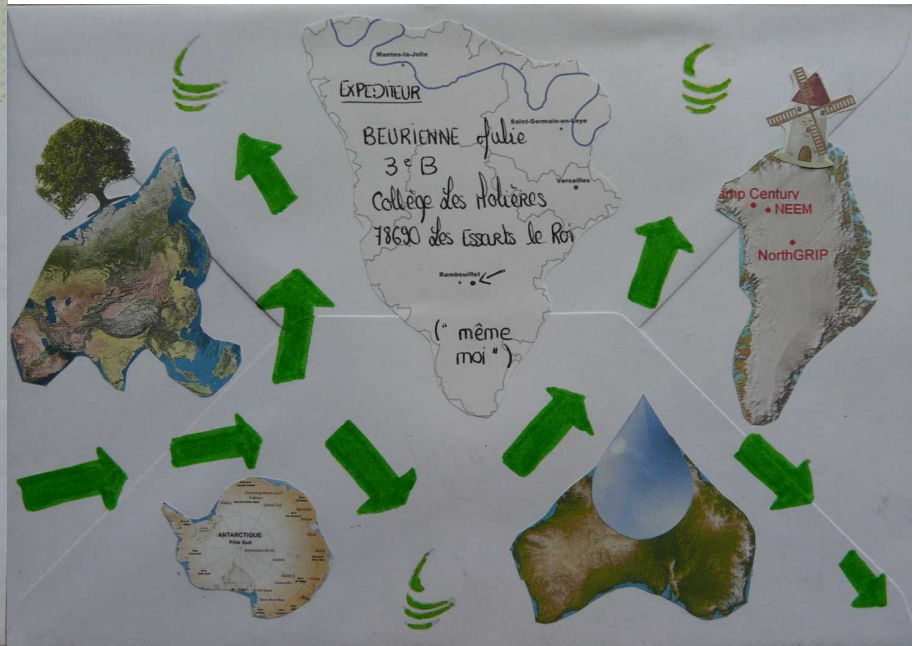 Mantes-la-Jolie
EXPEDITEUR
Saint-Germain-en-Laye
BEURIENNE Julie
3e B
Versailles
Collège Les Molières
78690 Les Essarts le Roi
Rambouillet
(" même
moi ")
mp Century
NEEM
NorthGRIP
ANTARCTIQUE
Pôle Sud